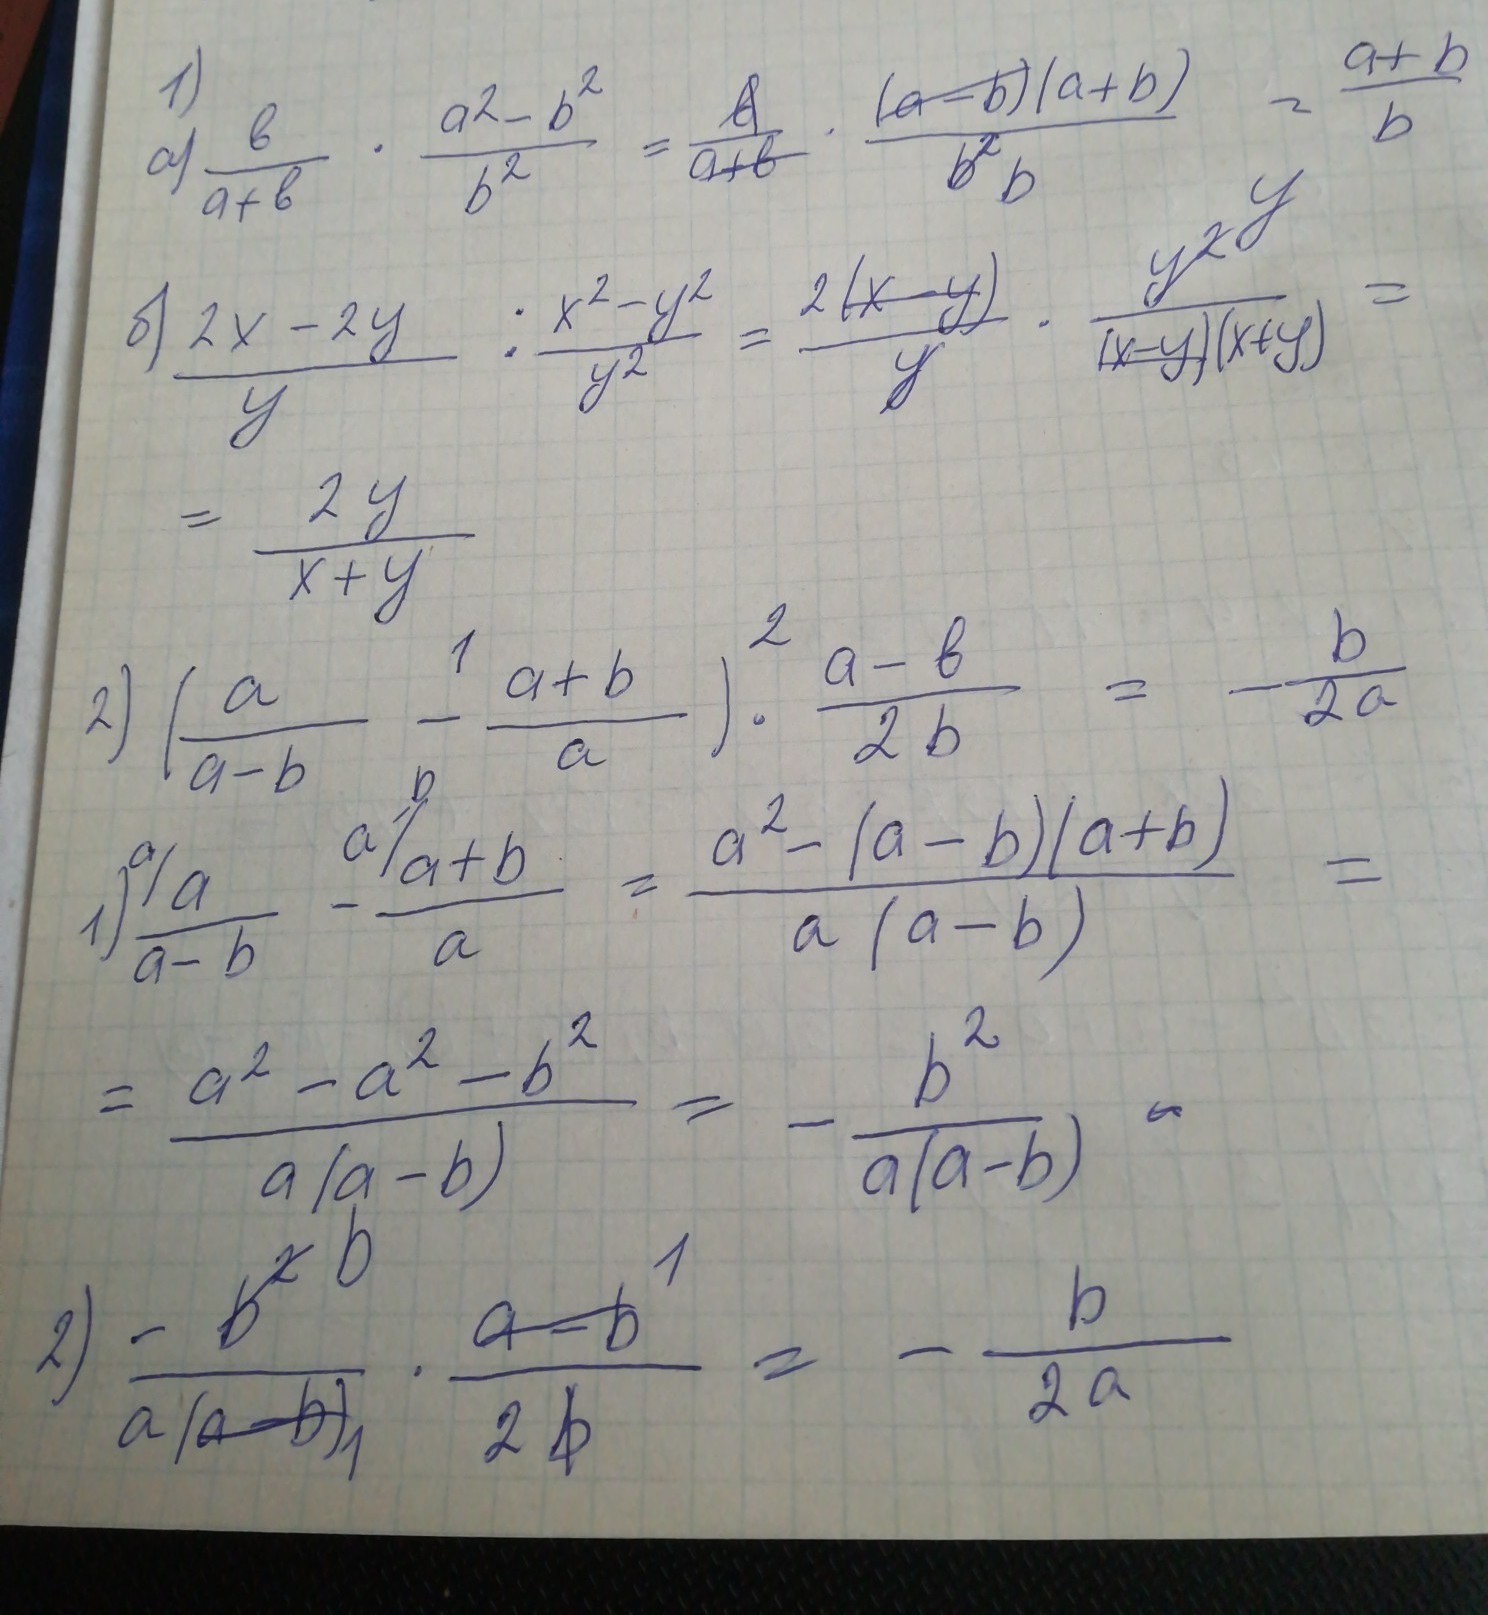 1)
а) в/(a+в) · (a² - b²)/b² = в/(a+в) · ((a-b)(a+b))/(b² b) = (a+b)/b
б) (2x - 2y)/y : (x² - y²)/y² = 2(x-y)/y · (y² y)/((x-y)(x+y)) =
= 2y/(x+y)
2) (a/(a-b) -¹ (a+b)/a) ·² (a-в)/(2b) = - b/(2a)
1) ᵃ/a/(a-b) - ᵃ⁻ᵇ/(a+b)/a = (a² - (a-b)(a+b))/(a(a-b)) =
= (a² - a² - b²)/(a(a-b)) = - b²/(a(a-b))
2) (- b² b)/(a(a-b) 1) · (a-b 1)/(2b) = - b/(2a)